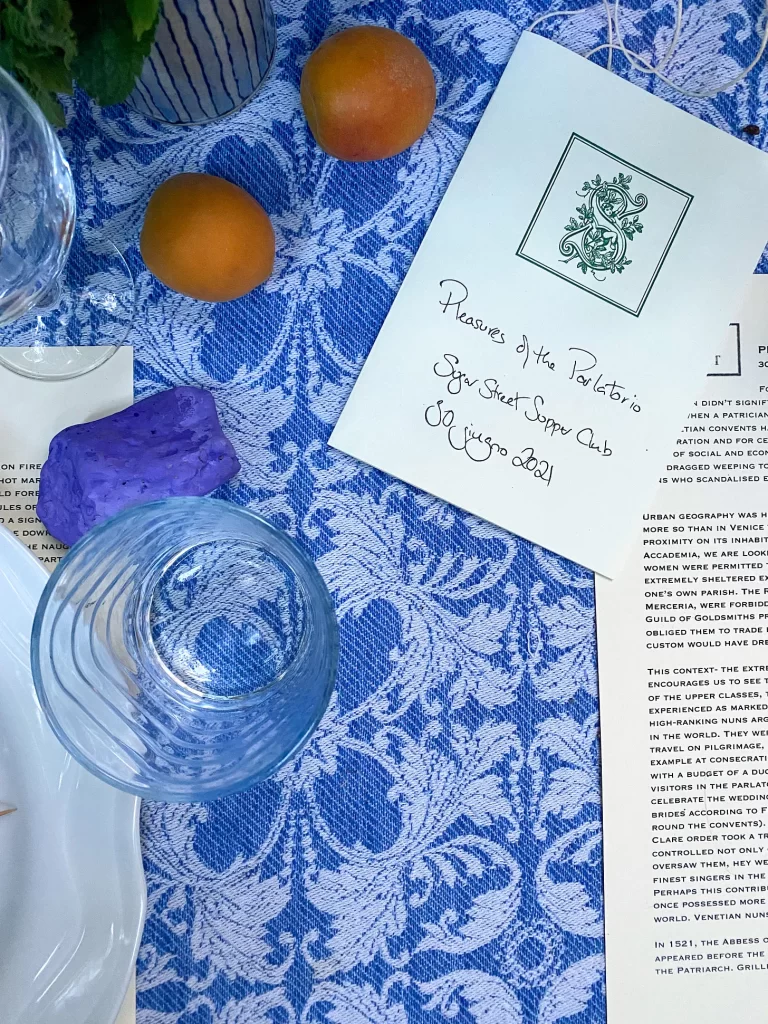 S
Pleasures of the Parlatorio
Sugar Street Supper Club
30 giugno 2021
ON FIRE
HOT MAR
LD FORE
ULES OF
O A SIGN
E DOWN
HE NAUG
PART
N DIDN'T SIGNIF
WHEN A PATRICIAN
TIAN CONVENTS H
RATION AND FOR CE
OF SOCIAL AND ECON
DRAGGED WEEPING TO
S WHO SCANDALISED E
URBAN GEOGRAPHY WAS H
MORE SO THAN IN VENICE
PROXIMITY ON ITS INHABIT
ACCADEMIA, WE ARE LOOKI
WOMEN WERE PERMITTED T
EXTREMELY SHELTERED EX
ONE'S OWN PARISH. THE R
MERCERIA, WERE FORBIDD
GUILD OF GOLDSMITHS PR
OBLIGED THEM TO TRADE
CUSTOM WOULD HAVE DRE
THIS CONTEXT- THE EXTRE
ENCOURAGES US TO SEE T
OF THE UPPER CLASSES, T
EXPERIENCED AS MARKED
HIGH-RANKING NUNS ARG
IN THE WORLD. THEY WER
TRAVEL ON PILGRIMAGE,
EXAMPLE AT CONSECRATI
WITH A BUDGET OF A DUC
VISITORS IN THE PARLATO
CELEBRATE THE WEDDING
BRIDES ACCORDING TO F
ROUND THE CONVENTS).
CLARE ORDER TOOK A TR
CONTROLLED NOT ONLY
OVERSAW THEM, HEY WE
FINEST SINGERS IN THE
PERHAPS THIS CONTRIB
ONCE POSSESSED MORE
WORLD. VENETIAN NUNS
IN 1521, THE ABBESS O
APPEARED BEFORE THE
THE PATRIARCH. GRILL